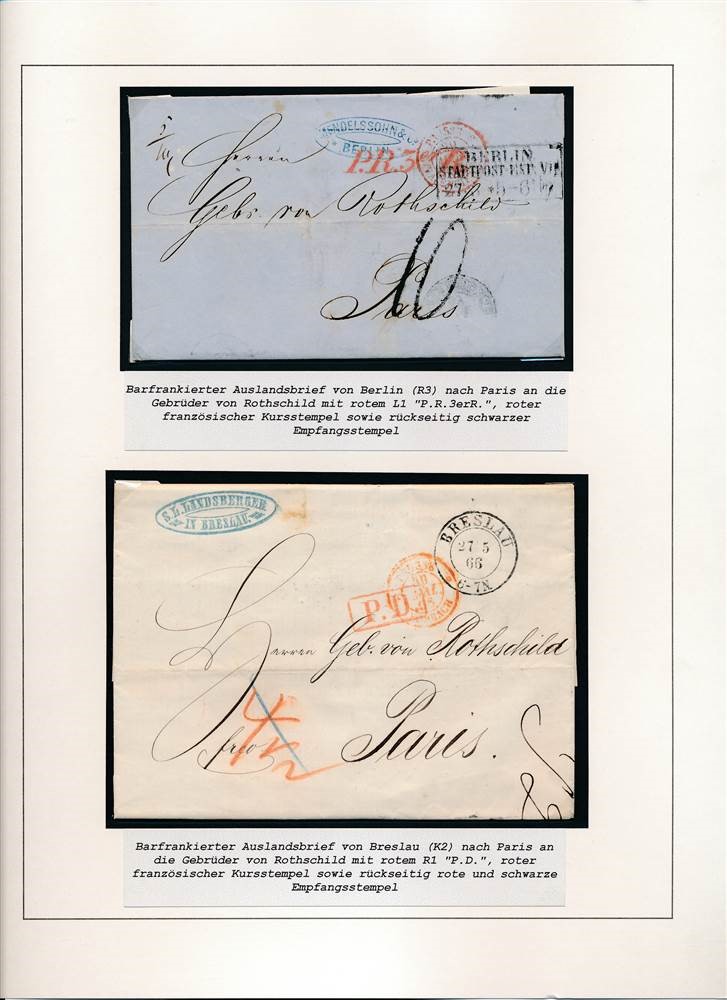 MENDELSSOHN & Co
BERLIN
P.R.3eR.
BERLIN
STADTPOST-EXP. VII
27
Herren
Gebr. von Rothschild
10
Paris
Barfrankierter Auslandsbrief von Berlin (R3) nach Paris an die
Gebrüder von Rothschild mit rotem L1 "P.R.3erR.", roter
französischer Kursstempel sowie rückseitig schwarzer
Empfangsstempel
S. L. LANDSBERGER
IN BRESLAU.
BRESLAU
27 5
66
6-7N
P.D.
Herren Geb. von Rothschild
Paris.
frco
Barfrankierter Auslandsbrief von Breslau (K2) nach Paris an
die Gebrüder von Rothschild mit rotem R1 "P.D.", roter
französischer Kursstempel sowie rückseitig rote und schwarze
Empfangsstempel